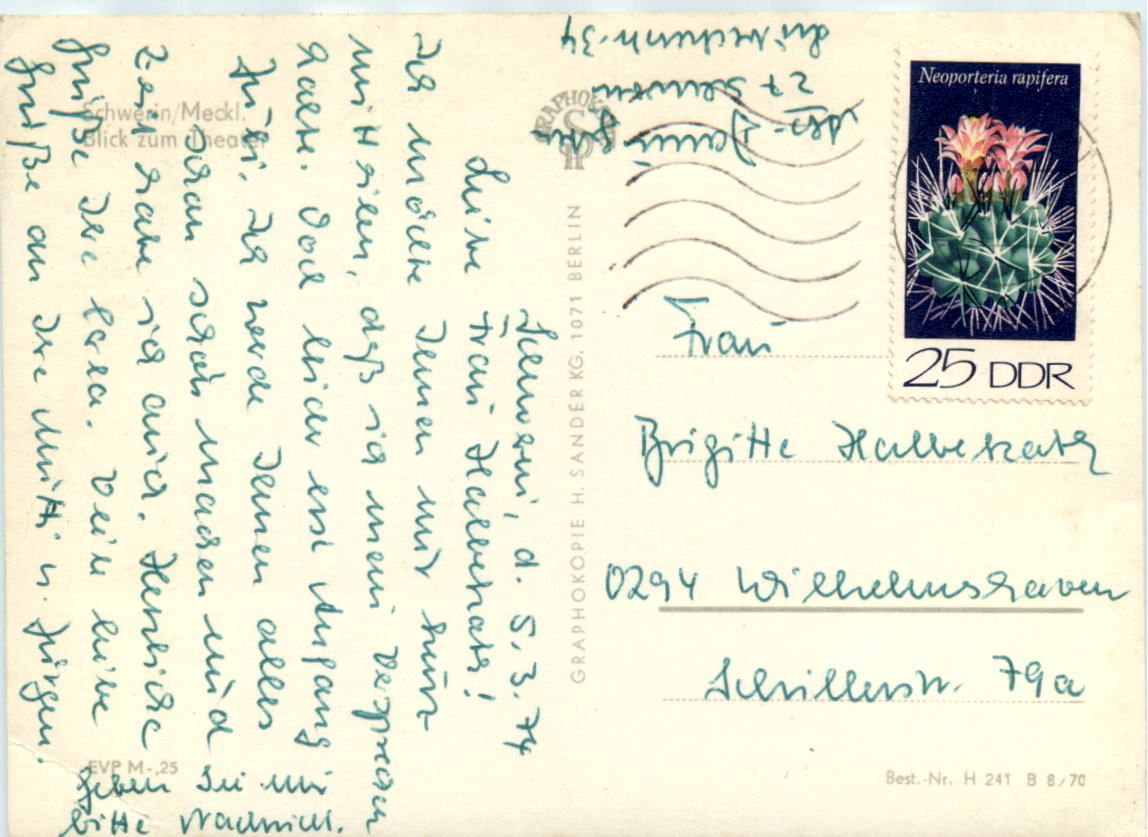 Schwerin/Meckl.
Blick zum Theater
Schwerin, d. 5.3.74
Liebe Frau Halbekath!
Ich möchte Ihnen nur kurz
mitteilen, daß ich mein Versprechen
halte. Doch leider erst Anfang
Juli. Ich werde Ihnen alles
schön machen und
Zeit habe ich auch. Herzliche
Grüße Ihre Viele liebe
Grüße an Ihre Mutti u. Jürgen.
Geben Sie mir
bitte Nachricht.
EVP M -,25
GRAPHOKOPIE H. SANDER KG, 1071 BERLIN
27 Schwerin
Neoporteria rapifera
25 DDR
Frau
Brigitte Halbekath
0294 Wilhelmshaven
Schillerstr. 79a
Best.-Nr. H 241 B 8/70